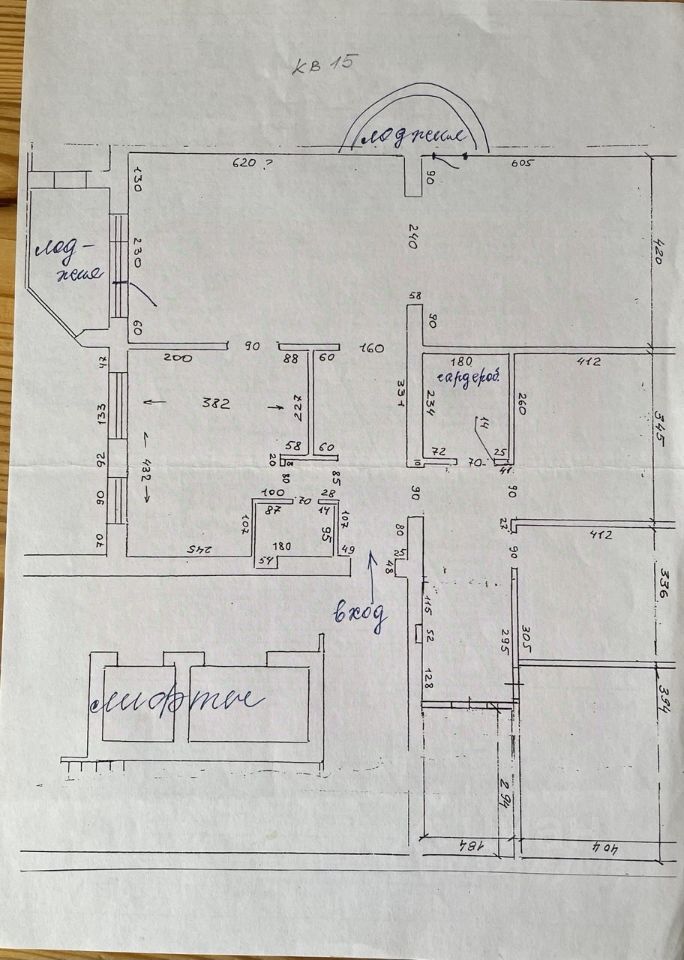 кв 15
лоджия
620 ?
605
130
90
230
240
420
лод-
жия
60
58
90
200
90
88
60
160
180
412
47
гардероб.
382
227
331
234
260
345
133
14
432
92
58
60
72
70
25
20
8
10
41
80
85
90
100
70
28
90
90
87
14
27
107
95
107
80
412
70
245
180
54
49
48
90
336
вход
115
52
295
305
128
лифты
394
294
184
404